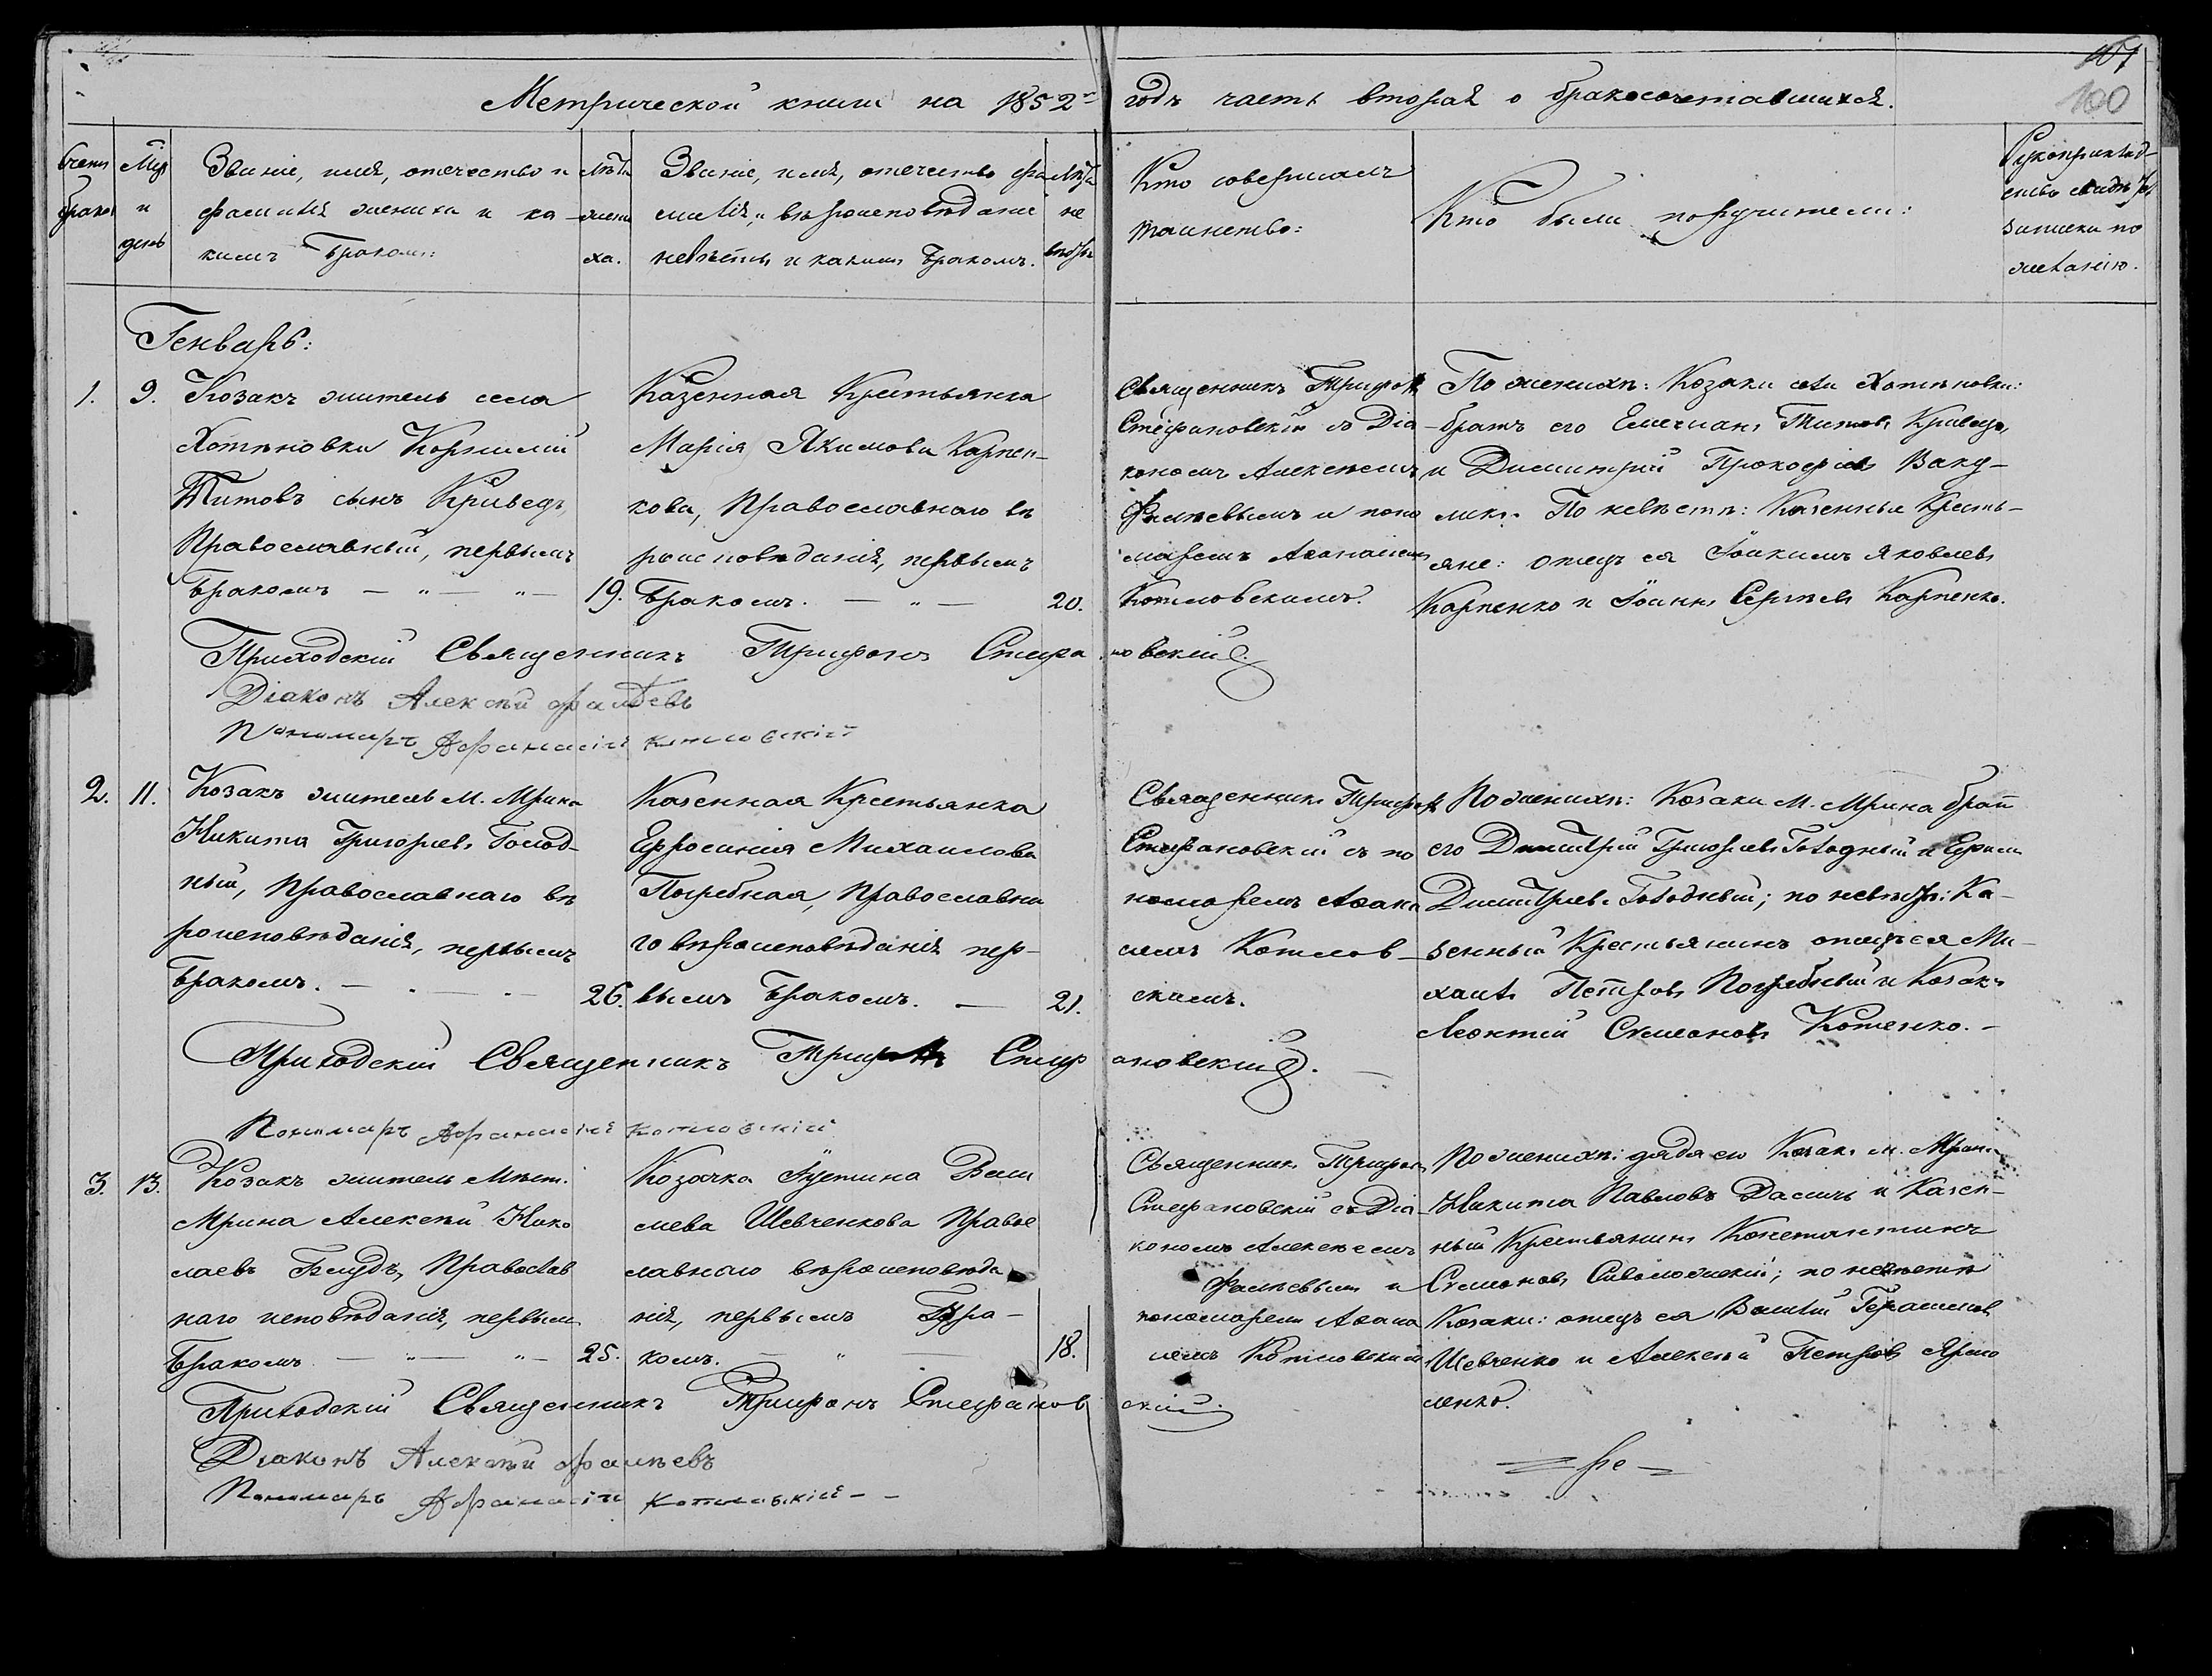 107
100
Метрической книги на 1852й годъ часть вторая о бракосочетавшихся.
Счетъ браковъ
Мцъ и день
Званіе, имя, отечество и
фамилія жениха и ка-
кимъ бракомъ:
Лѣта жени
ха.
Званіе, имя, отечество фа
милія, вѣроисповѣданіе
невѣсты и какимъ бракомъ.
Лѣта
не
вѣсты
Кто совершалъ
таинство:
Кто были поручители:
Рукоприклад-
ство свидѣт.
записки по
желанію.
Генварь:
1. 9.
Козакъ житель села
Хотѣновки Корнилій
Титовъ сынъ Кривецъ,
Православный, первымъ
бракомъ — „ — „ — 19.
Казенная Крестьянка
Марія Якимова Карпен-
кова, Православнаго вѣ
роисповѣданія, первымъ
бракомъ. — „ — 20.
Священникъ Трифонъ
Стефановскій съ Діа-
кономъ Алексѣемъ
Фалѣевымъ и поно
маремъ Аѳанасіемъ
Котловскимъ.
По женихѣ: Козаки села Хотѣновки:
братъ его Емеліанъ Титовъ Кривецъ,
и Димитрій Прокофіевъ
По невѣстѣ: Казенные Кресть-
яне: отецъ ея Іоакимъ Яковлевъ
Карпенко и Іоаннъ Сергѣевъ Карпенко.
Приходскій Священникъ Трифонъ Стефановскій.
Діаконъ Алексѣй Фалѣевъ
Пономарь Афанасій Котловскій
2. 11.
Козакъ житель М. Мрина
Никита Григорьевъ Голод-
ный, Православнаго вѣ
роисповѣданія, первымъ
бракомъ. — 26.
Казенная Крестьянка
Ефросинія Михаилова
Погребная, Православна
го вѣроисповѣданія пер-
вымъ бракомъ. — 21.
Священникъ Трифонъ
Стефановскій съ по
номаремъ Аѳана
сіемъ Котлов-
скимъ.
По женихѣ: Козаки М. Мрина братъ
его Димитрій Григорьевъ Голодный и Ефимъ
Димитріевъ Голодный; по невѣстѣ: Ка-
зенный Крестьянинъ отецъ ея Ми-
хаилъ Петровъ Погребный и Козакъ
Леонтій Симеоновъ Котенко. -
Приходскій Священникъ Трифонъ Стефановскій.
Пономарь Афанасій Котловскій
3. 13.
Козакъ житель Мѣст.
Мрина Алексѣй Нико
лаевъ Блудъ, Православ
наго исповѣданія, первымъ
бракомъ — „ — „ — 25.
Козачка Іустина Васи
лиева Шевченкова Право
славнаго вѣроисповѣда
нія, первымъ бра-
комъ. — „ — 18.
Священникъ Трифонъ
Стефановскій съ Діа-
кономъ Алексѣемъ
Фалѣевымъ и
пономаремъ Аѳана
сіемъ Котловскимъ
По женихѣ: дядя его Козакъ м. Мрина
Никита Павловъ и Казен-
ный Крестьянинъ Константинъ
Симеоновъ Сиволожскій; по невѣстѣ
Козаки: отецъ ея Василій Герасимовъ
Шевченко и Алексѣй Петровъ Ярмо
ленко.
Приходскій Священникъ Трифонъ Стефановскій.
Діаконъ Алексѣй Фалѣевъ
Пономарь Афанасій Котловскій - -